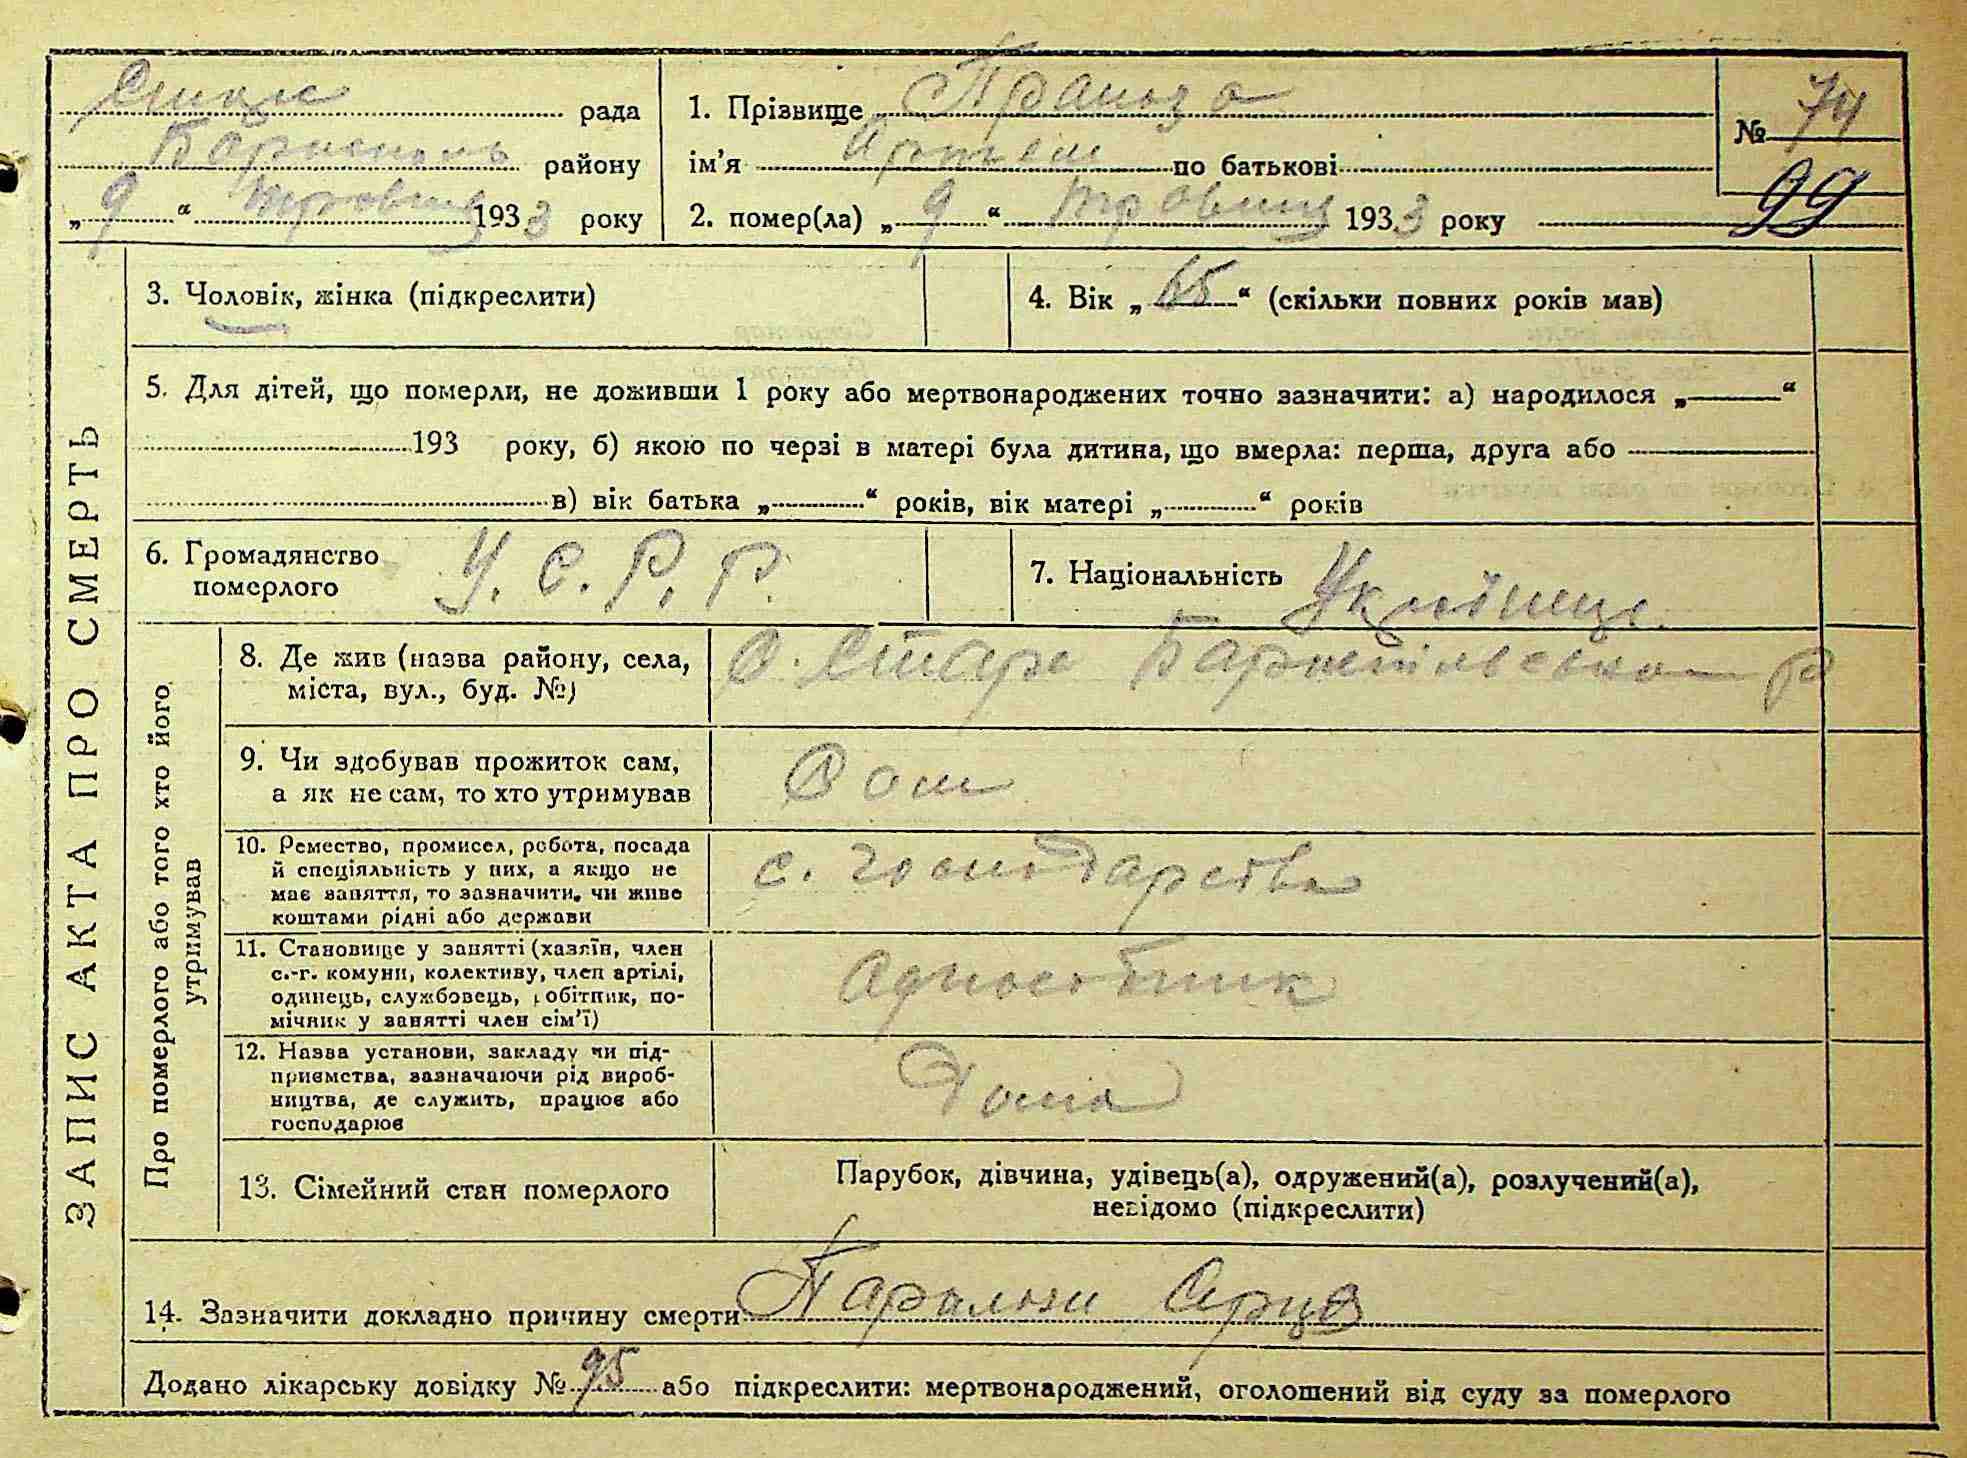 рада
Бориспіль району
„ 9 “ травня 1933 року
1. Прізвище
№ 74
99
ім’я Артем по батькові
2. помер(ла) „ 9 “ травня 1933 року
ЗАПИС АКТА ПРО СМЕРТЬ
3. Чоловік, жінка (підкреслити)
4. Вік „ 65 “ (скільки повних років мав)
5. Для дітей, що померли, не доживши 1 року або мертвонароджених точно зазначити: а) народилося „ “
193 року, б) якою по черзі в матері була дитина, що вмерла: перша, друга або
в) вік батька „ “ років, вік матері „ “ років
6. Громадянство
померлого
У. С. Р. Р.
7. Національність Українець
Про померлого або того хто його
утримував
8. Де жив (назва району, села,
міста, вул., буд. №)
с. Старе р
9. Чи здобував прожиток сам,
а як не сам, то хто утримував
Сам
10. Ремество, промисел, робота, посада
й спеціяльність у них, а якщо не
має заняття, то зазначити, чи живе
коштами рідні або держави
с. господарство
11. Становище у занятті (хазяїн, член
с.-г. комуни, колективу, член артілі,
одинець, службовець, робітник, по-
мічник у занятті член сім’ї)
Односібник
12. Назва установи, закладу чи під-
приємства, зазначаючи рід вироб-
ництва, де служить, працює або
господарює
Дома
13. Сімейний стан померлого
Парубок, дівчина, удівець(а), одружений(а), розлучений(а),
невідомо (підкреслити)
14. Зазначити докладно причину смерти Паралюзи Серця
Додано лікарську довідку № 95 або підкреслити: мертвонароджений, оголошений від суду за померлого